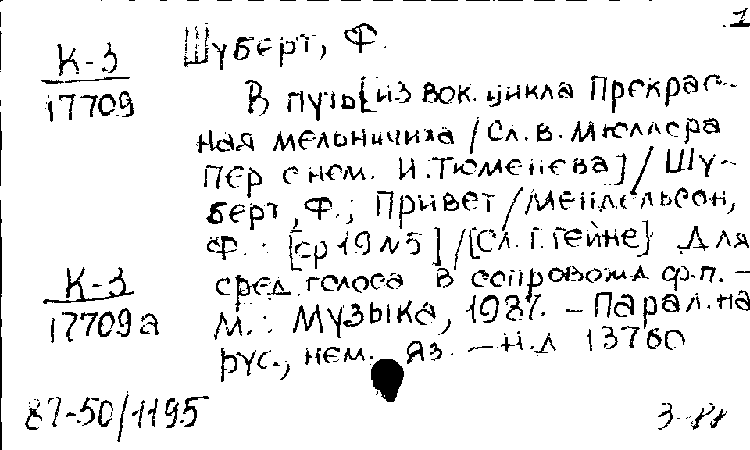 1
К-3
17709
Шуберт, Ф.
В путь [из вок. цикла Прекрас-
ная мельничиха / Сл. В. Мюллера
пер с нем. И. Тюменева] / Шу-
берт, Ф.; Привет / Мендельсон,
Ф.: [ср 19 №5] / [Сл. Г. Гейне] Для
сред. голоса в сопровожд ф.п. –
К-3
17709а
М.: Музыка, 1987. – Парал. на
рус., нем. яз. – Н.д 13760
87-50/1195
3-88